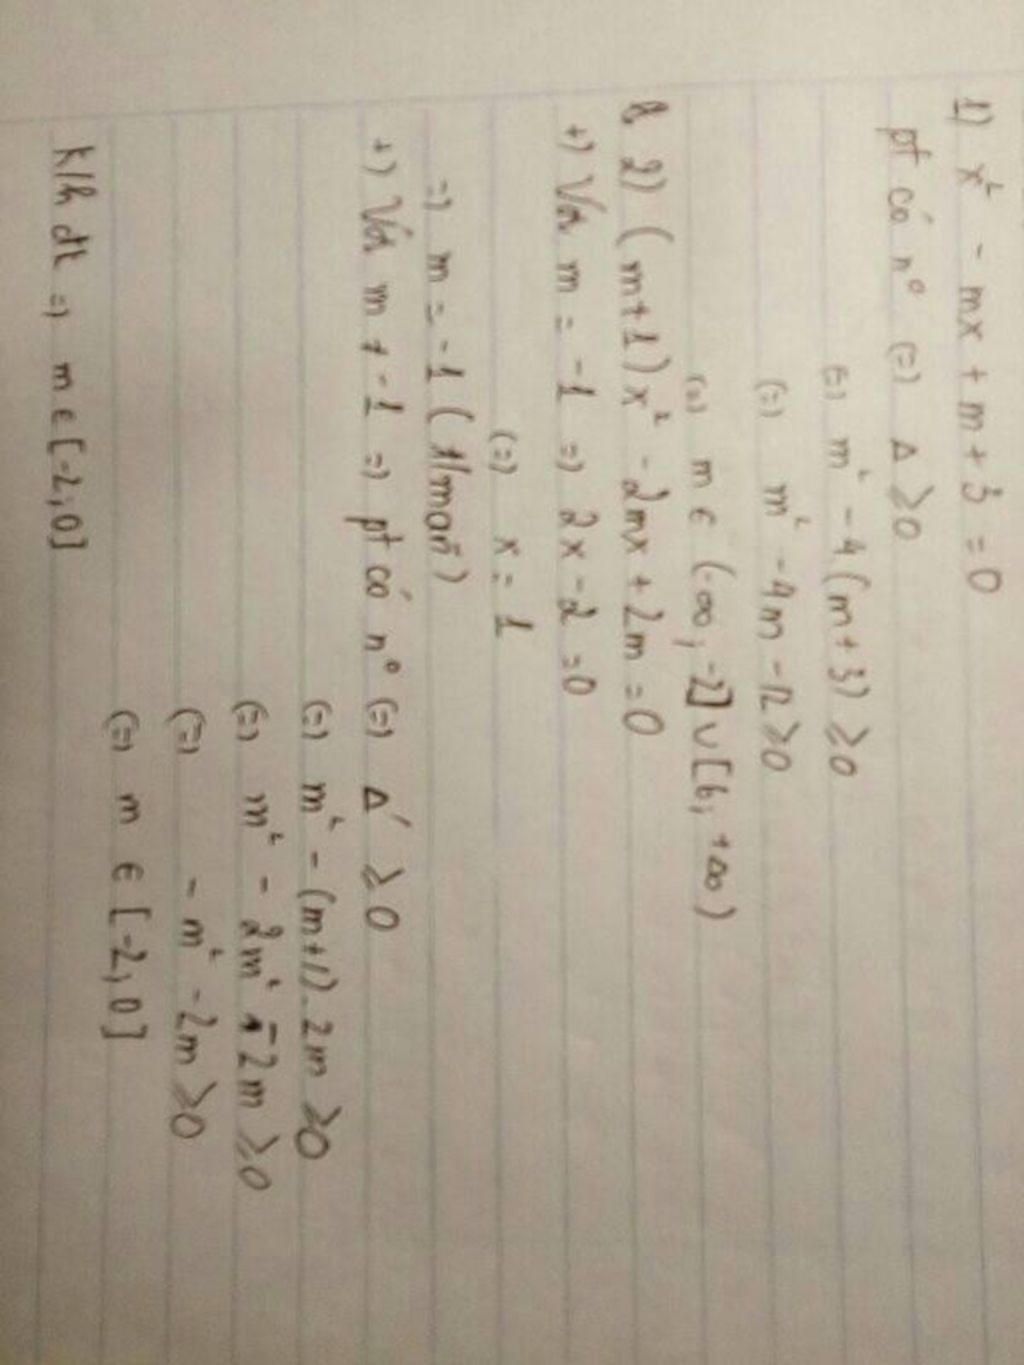 1) x² - mx + m + 3 = 0
pt có n° (=) Δ ≥ 0
(=) m² - 4(m+3) ≥ 0
(=) m² - 4m - 12 ≥ 0
(=) m ∈ (-∞, -2] ∪ [6, +∞)
2) (m+1)x² - 2mx + 2m = 0
+) Với m = -1 => 2x - 2 = 0
(=) x = 1
=> m = -1 (t/mãn)
+) Với m ≠ -1 => pt có n° (=) Δ' ≥ 0
(=) m² - (m+1).2m ≥ 0
(=) m² - 2m² - 2m ≥ 0
(=) - m² - 2m ≥ 0
(=) m ∈ [-2, 0]
k/h đk => m ∈ [-2, 0]